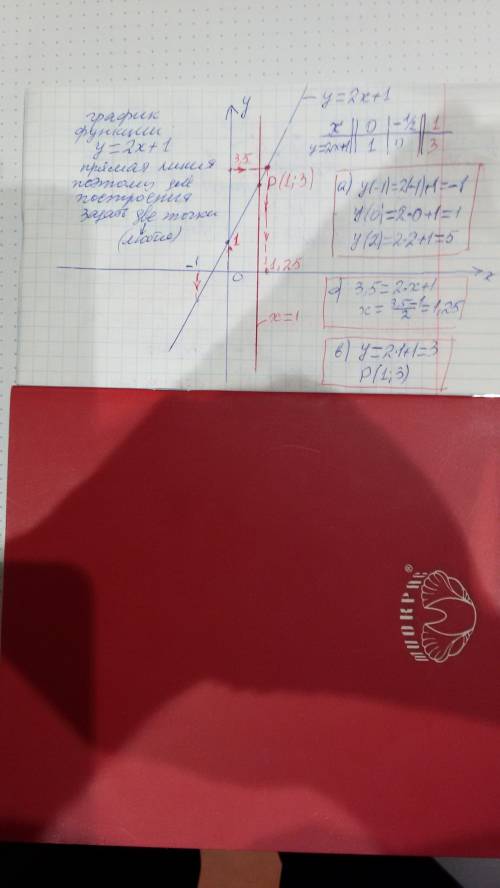 график
функции
y=2x+1
прямая линия
поэтому для
построения
задай две точки
(любые)
y
y=2x+1
3,5
P(1;3)
1
-1
0
1,25
x
x=1
x | 0 | -1/2 | 1
y=2x+1 | 1 | 0 | 3
а) y(-1)=2(-1)+1=-1
y(0)=2·0+1=1
y(2)=2·2+1=5
3,5=2·x+1
x=(3,5-1)/2=1,25
в) y=2·1+1=3
P(1;3)
®